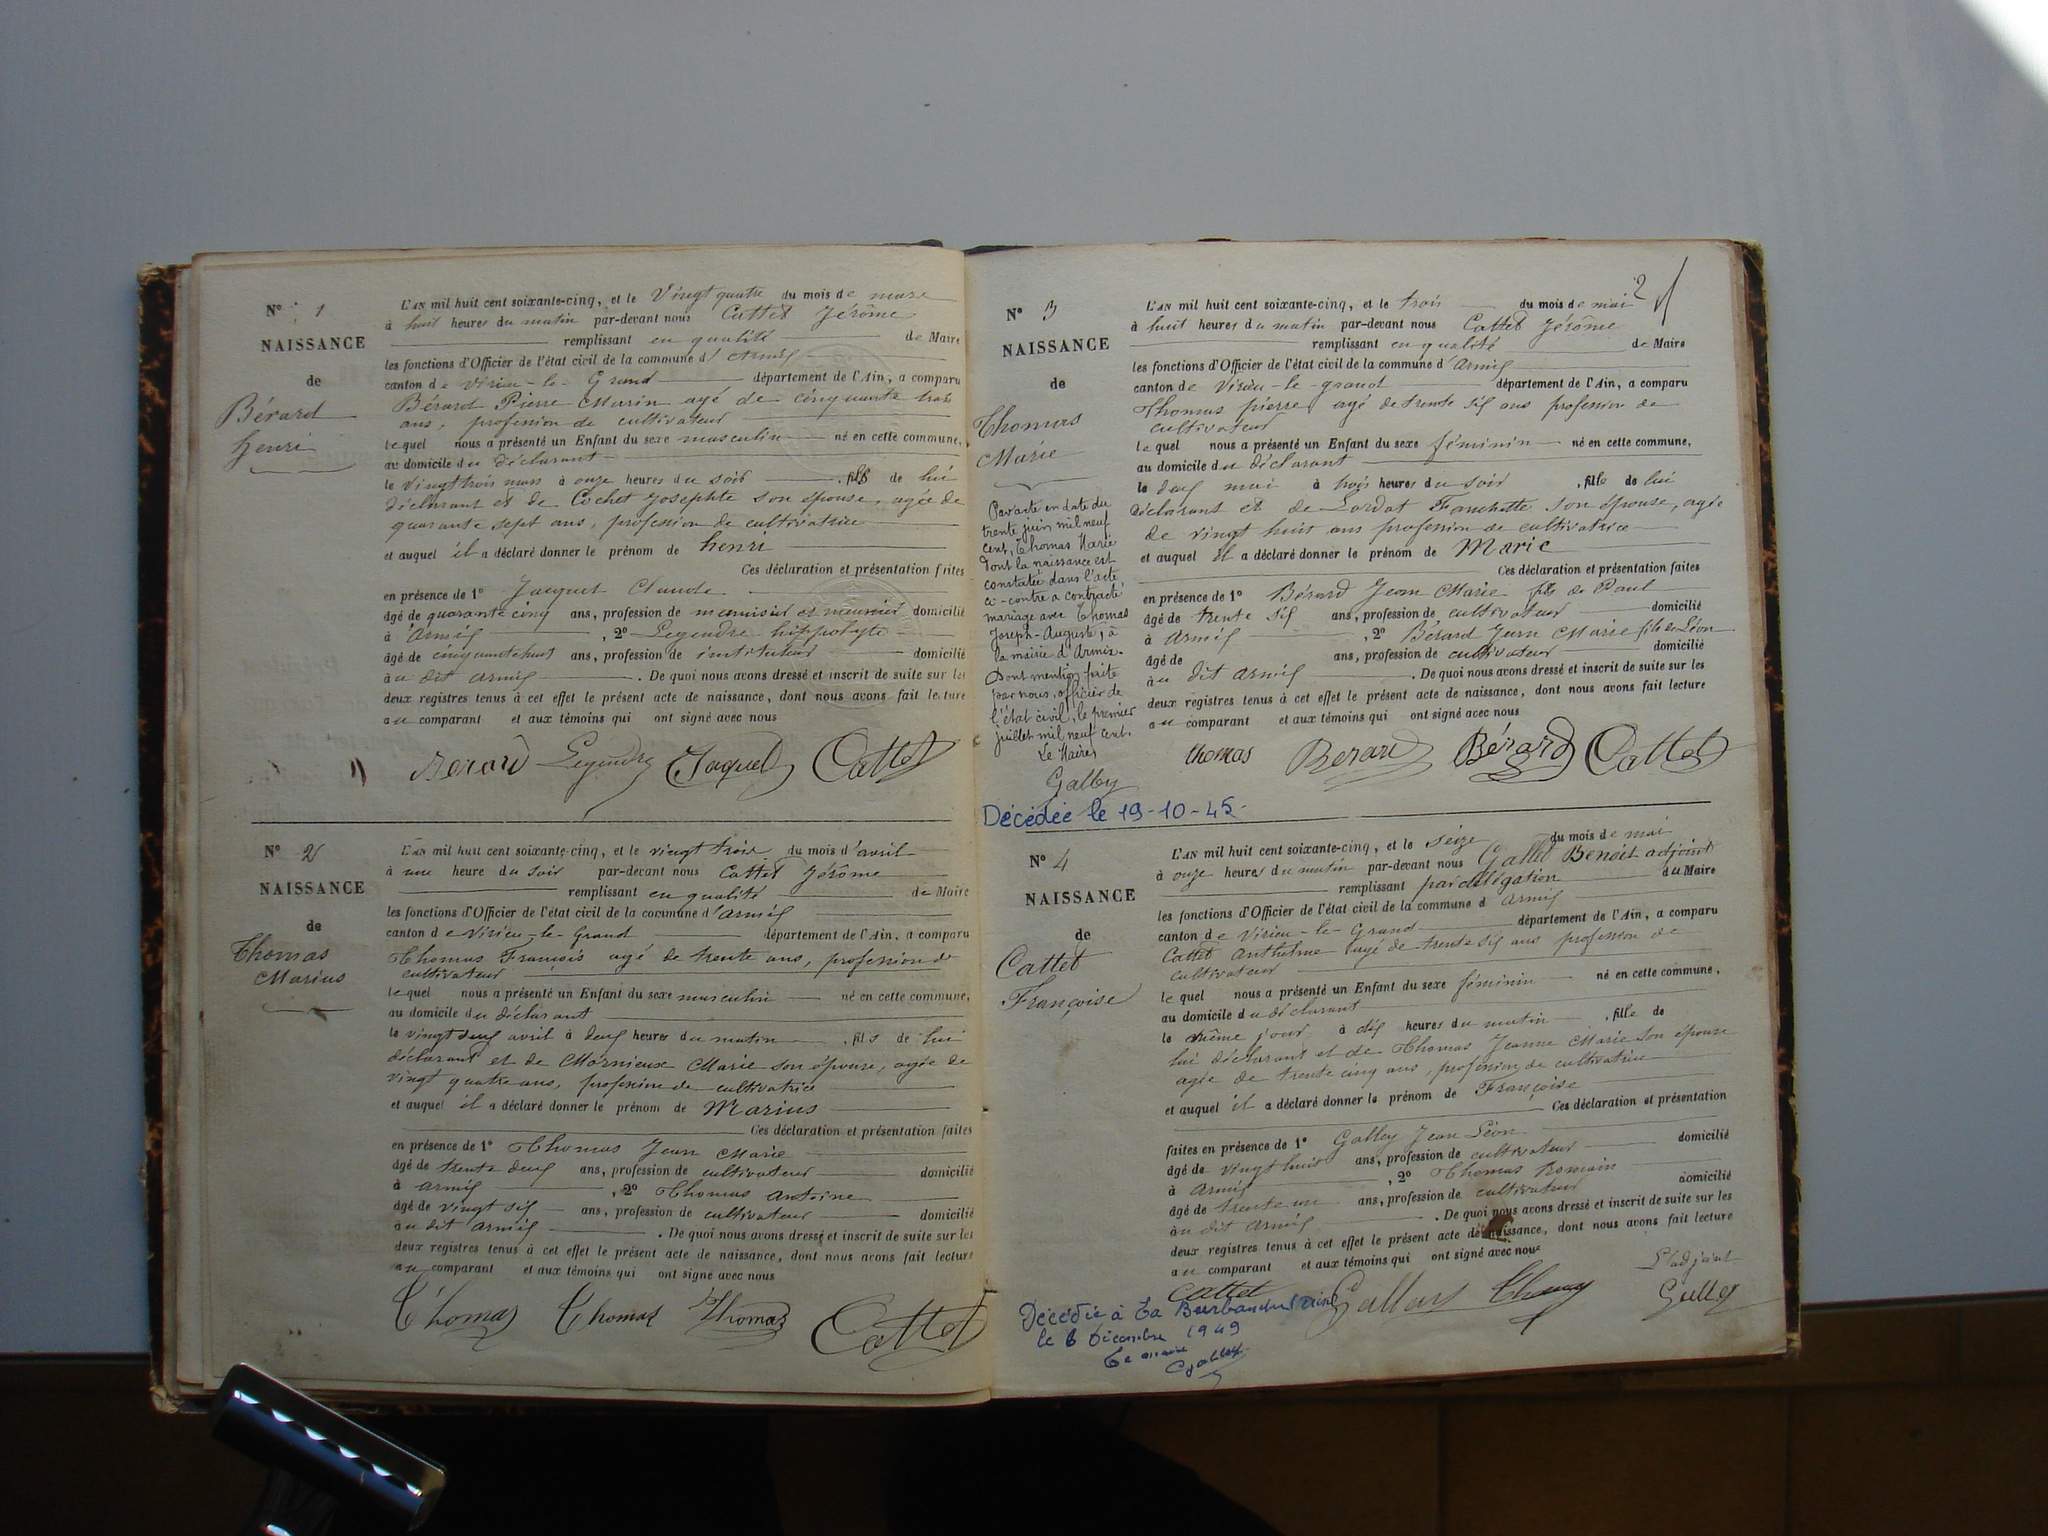 N° 1
NAISSANCE
de
Bérard
henri
L'AN mil huit cent soixante-cinq, et le Vingt quatre du mois de mars
à huit heures du matin par-devant nous Cattet Jérôme
remplissant en qualité de Maire
les fonctions d'Officier de l'état civil de la commune d'Armix
canton de Virieu-le-Grand département de l'Ain, a comparu
Bérard Pierre Marin agé de cinquante trois
ans, profession de cultivateur
lequel nous a présenté un Enfant du sexe masculin né en cette commune,
au domicile du déclarant
le vingt trois mars à onze heures du soir , fils de lui
déclarant et de Cochet Josephte son épouse, agée de
quarante sept ans, profession de cultivatrice
et auquel il a déclaré donner le prénom de henri
Ces déclaration et présentation faites
en présence de 1° Jacquet Claude
âgé de quarante cinq ans, profession de menuisier et meunier domicilié
à Armix , 2° Legendre hippolyte
âgé de cinquante huit ans, profession de instituteur domicilié
au dit Armix . De quoi nous avons dressé et inscrit de suite sur les
deux registres tenus à cet effet le présent acte de naissance, dont nous avons fait lecture
au comparant et aux témoins qui ont signé avec nous
Berard Legendre Jaquet Cattet
N° 2
NAISSANCE
de
Thomas
Marius
L'AN mil huit cent soixante-cinq, et le vingt trois du mois d'avril
à une heure du soir par-devant nous Cattet Jérôme
remplissant en qualité de Maire
les fonctions d'Officier de l'état civil de la commune d'Armix
canton de Virieu-le-Grand département de l'Ain, a comparu
Thomas François agé de trente ans, profession de
cultivateur
lequel nous a présenté un Enfant du sexe masculin né en cette commune,
au domicile du déclarant
le vingt deux avril à deux heures du matin , fils de lui
déclarant et de Mornieux Marie son épouse, agée de
vingt quatre ans, profession de cultivatrice
et auquel il a déclaré donner le prénom de Marius
Ces déclaration et présentation faites
en présence de 1° Thomas Jean Marie
âgé de trente deux ans, profession de cultivateur domicilié
à Armix , 2° Thomas Antoine
âgé de vingt six ans, profession de cultivateur domicilié
au dit Armix . De quoi nous avons dressé et inscrit de suite sur les
deux registres tenus à cet effet le présent acte de naissance, dont nous avons fait lecture
au comparant et aux témoins qui ont signé avec nous
Thomas Thomas Thomas Cattet
2
N° 3
NAISSANCE
de
Thomas
Marie
Par acte en date du
trente juin mil neuf
cent, Thomas Marie
dont la naissance est
constatée dans l'acte
ci-contre a contracté
mariage avec Thomas
Joseph-Auguste, à
la mairie d'Armix.
Dont mention faite
par nous, officier de
l'état civil, le premier
juillet mil neuf cent.
Le Maire,
Galley
Décédée le 19-10-45-
L'AN mil huit cent soixante-cinq, et le trois du mois de mai
à huit heures du matin par-devant nous Cattet Jérôme
remplissant en qualité de Maire
les fonctions d'Officier de l'état civil de la commune d'Armix
canton de Virieu-le-grand département de l'Ain, a comparu
Thomas pierre agé de trente six ans profession de
cultivateur
lequel nous a présenté un Enfant du sexe féminin né en cette commune,
au domicile du déclarant
le deux mai à trois heures du soir , fille de lui
déclarant et de Lordat Franchette son épouse, agée
de vingt huit ans profession de cultivatrice
et auquel il a déclaré donner le prénom de Marie
Ces déclaration et présentation faites
en présence de 1° Bérard Jean Marie fils de Paul
âgé de trente six ans, profession de cultivateur domicilié
à Armix , 2° Bérard Jean Marie fils de Léon
âgé de ans, profession de cultivateur domicilié
au dit Armix . De quoi nous avons dressé et inscrit de suite sur les
deux registres tenus à cet effet le présent acte de naissance, dont nous avons fait lecture
au comparant et aux témoins qui ont signé avec nous
thomas Berard Bérard Cattet
N° 4
NAISSANCE
de
Cattet
Françoise
L'AN mil huit cent soixante-cinq, et le seize du mois de mai
à onze heures du matin par-devant nous Benoit adjoint
remplissant par délégation du Maire
les fonctions d'Officier de l'état civil de la commune d Armix
canton de Virieu-le-Grand département de l'Ain, a comparu
Cattet Anthelme agé de trente six ans profession de
cultivateur
lequel nous a présenté un Enfant du sexe féminin né en cette commune,
au domicile du déclarant
le même jour à dix heures du matin , fille de
lui déclarant et de Thomas Jeanne Marie son épouse
agée de trente cinq ans, profession de cultivatrice
et auquel il a déclaré donner le prénom de Françoise
Ces déclaration et présentation
faites en présence de 1° Galley Jean Léon
âgé de vingt huit ans, profession de cultivateur domicilié
à Armix , 2° Thomas Romain
âgé de trente un ans, profession de cultivateur domicilié
au dit Armix . De quoi nous avons dressé et inscrit de suite sur les
deux registres tenus à cet effet le présent acte de naissance, dont nous avons fait lecture
au comparant et aux témoins qui ont signé avec nous
L'adjoint
Cattet Galley
Décédée à La Burbanche (Ain)
le 6 Décembre 1949
Le maire
Galley